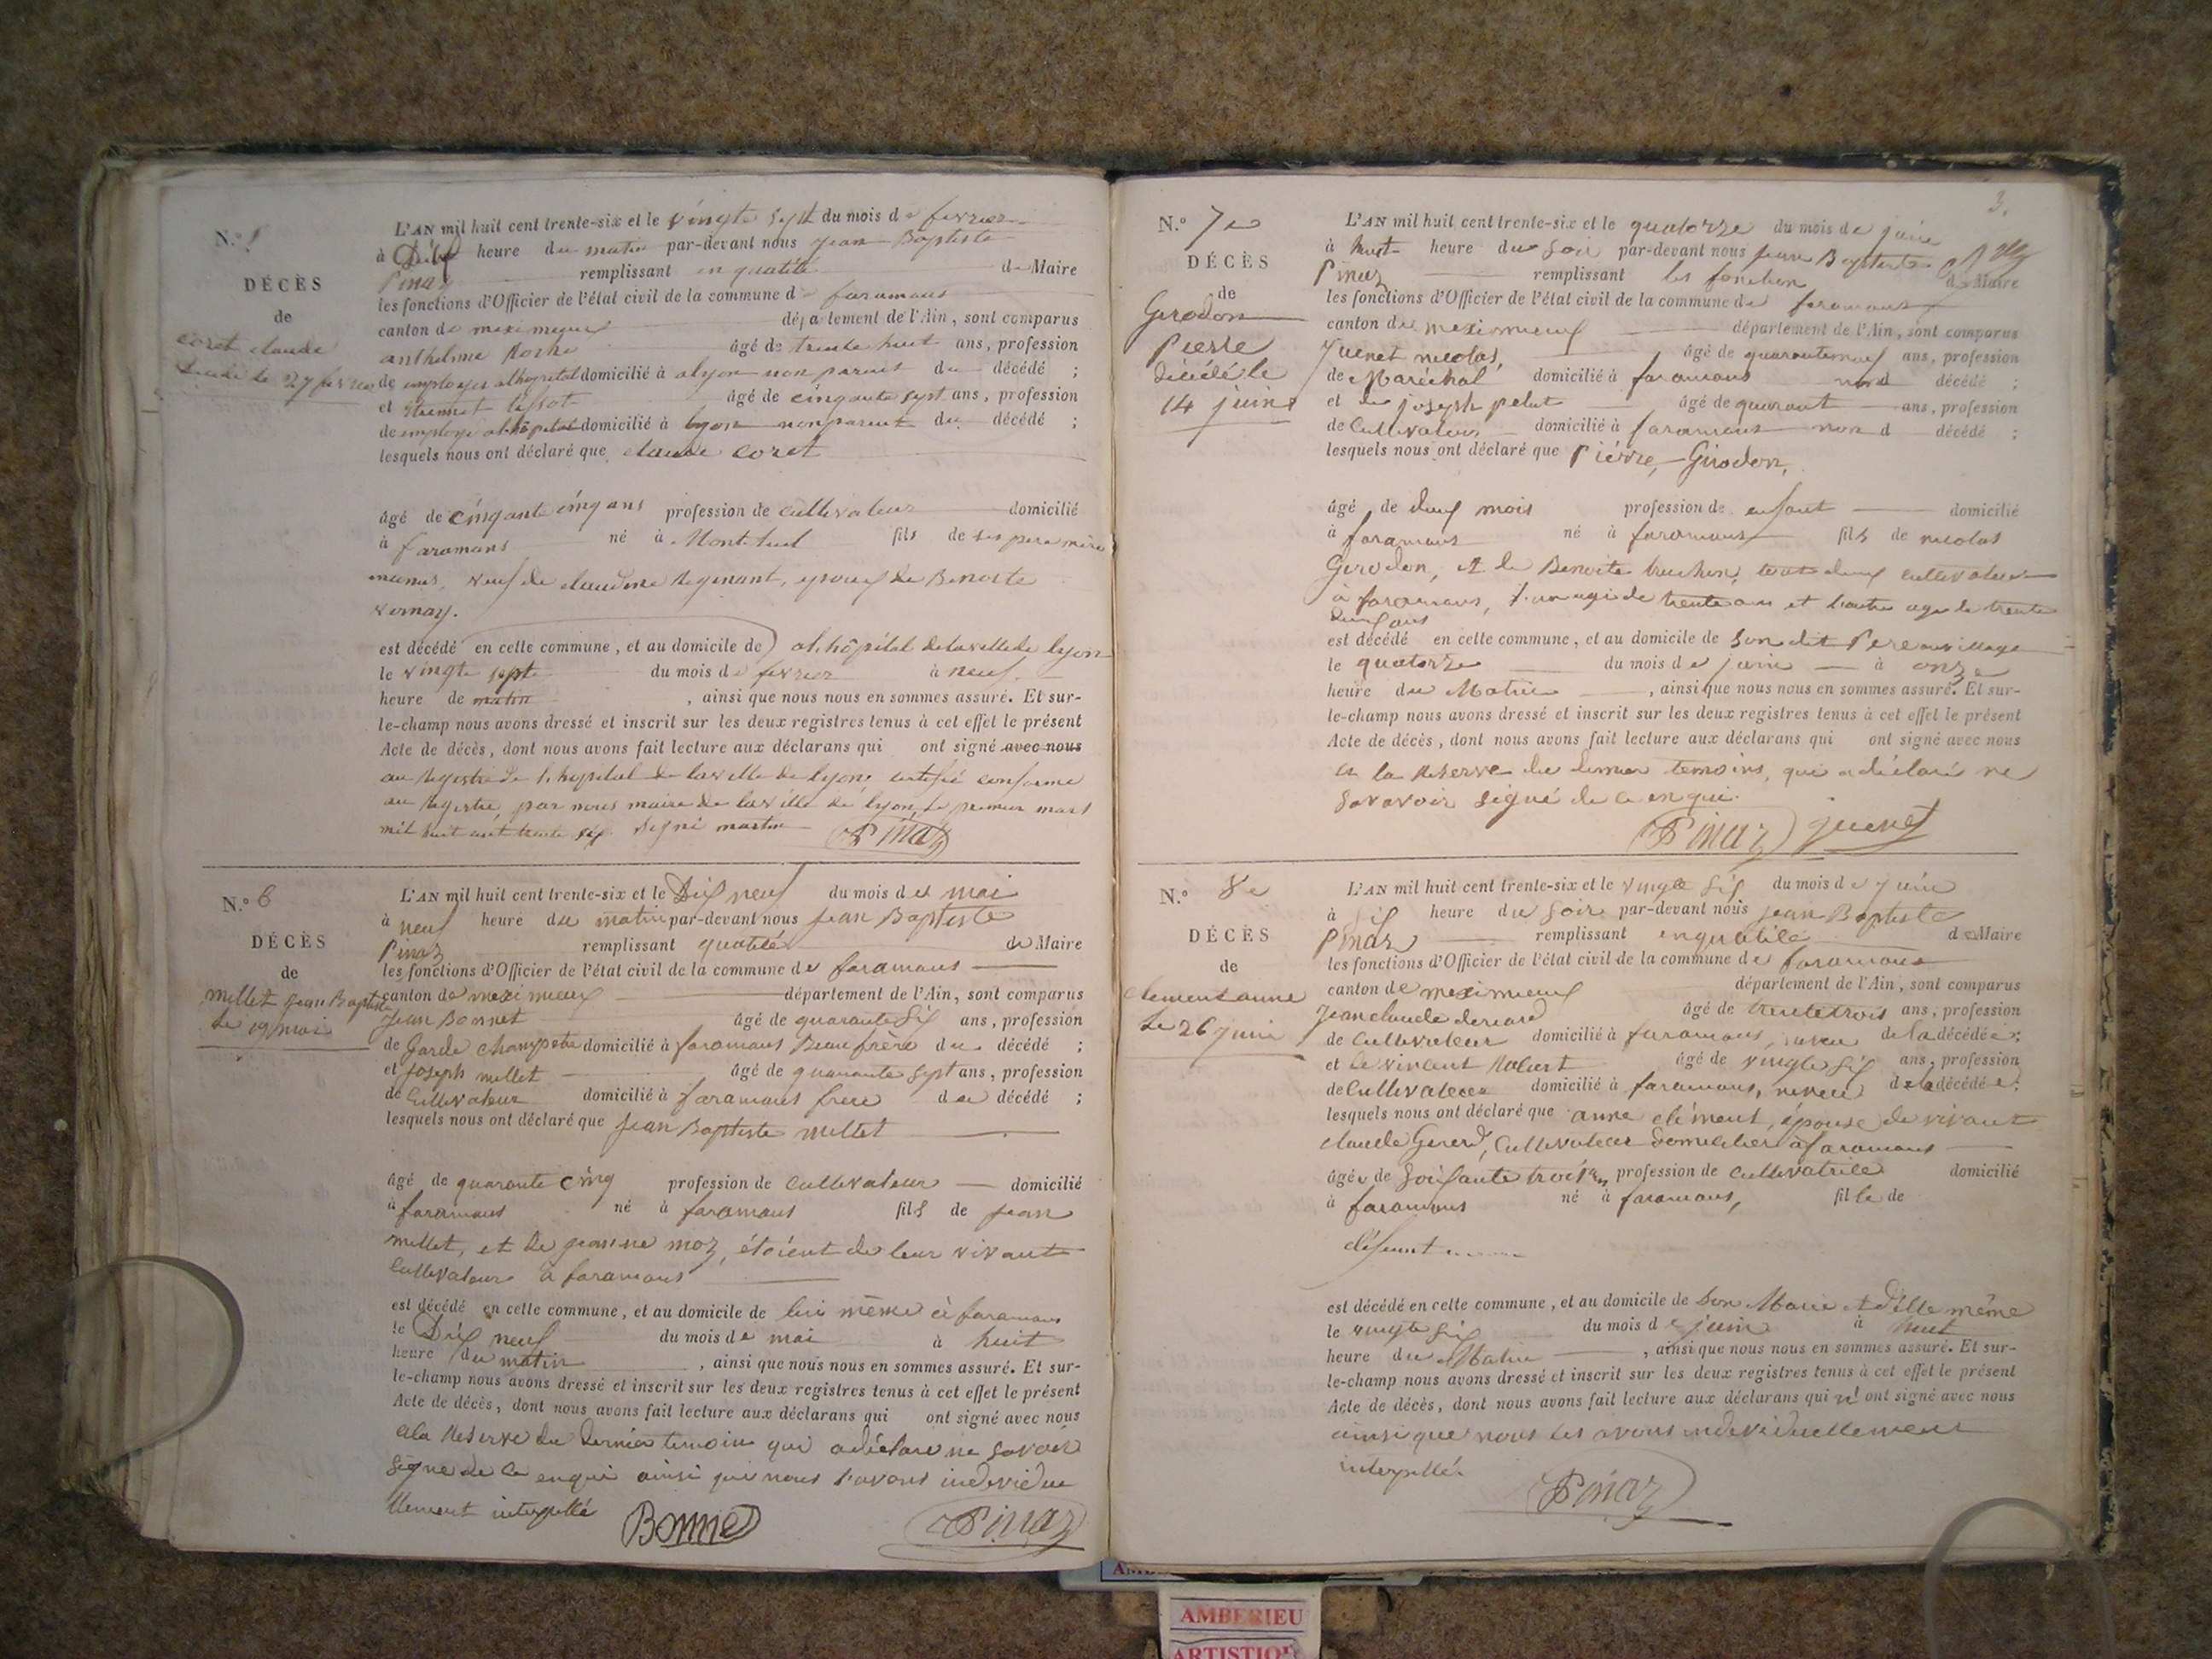 DÉCÈS
de
coret claude
décédé le 27 février
L'AN mil huit cent trente-six et le vingte sept du mois de fevrier
à Dix heure du matin par-devant nous jean Baptiste
Pinaz remplissant en qualité de Maire
les fonctions d'Officier de l'état civil de la commune de faramans
canton de meximieux département de l'Ain, sont comparus
anthelme Roche âgé de trente huit ans, profession
de employer alhopital domicilié à alyon non parent du décédé ;
et tissot âgé de cinquante sept ans, profession
de employé alhôpital domicilié à lyon non parent du décédé ;
lesquels nous ont déclaré que claude coret
âgé de cinquante cinq ans profession de cultivateur domicilié
à faramans né à Montluel fils de ses pere mère
veuf de claudine epoux de Benoite
vernay.
est décédé en cette commune, et au domicile de) al. hôpital de la ville de lyon
le vingte septe du mois de fevrier à neuf
heure de matin, ainsi que nous nous en sommes assuré. Et sur-
le-champ nous avons dressé et inscrit sur les deux registres tenus à cet effet le présent
Acte de décès, dont nous avons fait lecture aux déclarans qui ont signé avec nous
au registre de l. hopital de la ville de lyon, certifié conforme
au registre, par nous maire de la ville de lyon, le premier mars
mil huit cent trente six. Signé martin Pinaz
N.° 6
DÉCÈS
de
millet jean Baptiste
le 19 mai
L'AN mil huit cent trente-six et le Dix neuf du mois de mai
à neuf heure du matin par-devant nous jean Baptiste
Pinaz remplissant qualité de Maire
les fonctions d'Officier de l'état civil de la commune de faramans
canton de meximieux département de l'Ain, sont comparus
jean Bonnet âgé de quarante six ans, profession
de garde champetre domicilié à faramans Beau frère du décédé ;
et joseph millet âgé de quarante sept ans, profession
de cultivateur domicilié à faramans frere du décédé ;
lesquels nous ont déclaré que jean Baptiste millet
âgé de quarante cinq profession de cultivateur domicilié
à faramans né à faramans fils de jean
millet, et de jeanne moz, étoient de leur vivant
cultivateur à faramans
est décédé en cette commune, et au domicile de lui même à faramans
le Dix neuf du mois de mai à huit
heure du matin, ainsi que nous nous en sommes assuré. Et sur-
le-champ nous avons dressé et inscrit sur les deux registres tenus à cet effet le présent
Acte de décès, dont nous avons fait lecture aux déclarans qui ont signé avec nous
ala reserve du dernier temoin qui a déclaré ne savoir
signe de ce enqui ainsi que nous l'avons individue
llement interpellé Bonnet Pinaz
3.
N.° 7e
DÉCÈS
de
Girodon
Pierre
décédé le
14 juin
L'AN mil huit cent trente-six et le quatorze du mois de juin
à huit heure du soir par-devant nous jean Baptiste
Pinaz remplissant les fonction de Maire
les fonctions d'Officier de l'état civil de la commune de faramans
canton de meximieux département de l'Ain, sont comparus
Juenet nicolas, âgé de quarante neuf ans, profession
de Maréchal domicilié à faramans non d décédé ;
et de joseph pelut âgé de quarant ans, profession
de Cultivateur domicilié à faramans non d décédé ;
lesquels nous ont déclaré que Piérre, Girodon,
âgé de deux mois profession de enfant domicilié
à faramans né à faramans fils de nicolas
Girodon, et de Benoite tous deux cultivateur
à faramans, l'un agé de trente ans et l'autre age de trente
deux ans
est décédé en cette commune, et au domicile de son dit Pere au village
le quatorze du mois de juin à onze
heure du Matin, ainsi que nous nous en sommes assuré. Et sur-
le-champ nous avons dressé et inscrit sur les deux registres tenus à cet effet le présent
Acte de décès, dont nous avons fait lecture aux déclarans qui ont signé avec nous
a la reserve du dernier temoins, qui a déclaré ne
savavoir signé de ce enqui.
Pinaz Juenet
N.° 8e
DÉCÈS
de
clement anne
Le 26 juin
L'AN mil huit cent trente-six et le vingte six du mois de juin
à six heure du soir par-devant nous jean Baptiste
Pinaz remplissant en qualité de Maire
les fonctions d'Officier de l'état civil de la commune de faramans
canton de meximieux département de l'Ain, sont comparus
jean claude âgé de trente trois ans, profession
de Cultivateur domicilié à faramans, neveu de la décédée ;
et de vincent âgé de vingte six ans, profession
de Cultivateur domicilié à faramans, neveu de la décédée ;
lesquels nous ont déclaré que anne clément, épouse de vivant
claude Girerd, Cultivateur domicilier à faramans
âgée de soixante trois ans profession de cultivatrice domicilié
à faramans né à faramans, fille de
défunt
est décédé en cette commune, et au domicile de son Marie et d'elle même
le vingte six du mois de juin à huit
heure du Matin, ainsi que nous nous en sommes assuré. Et sur-
le-champ nous avons dressé et inscrit sur les deux registres tenus à cet effet le présent
Acte de décès, dont nous avons fait lecture aux déclarans qui n' ont signé avec nous
ainsi que nous les avons individuellement
interpellé. Pinaz
AMBERIEU
ARTISTIQUE